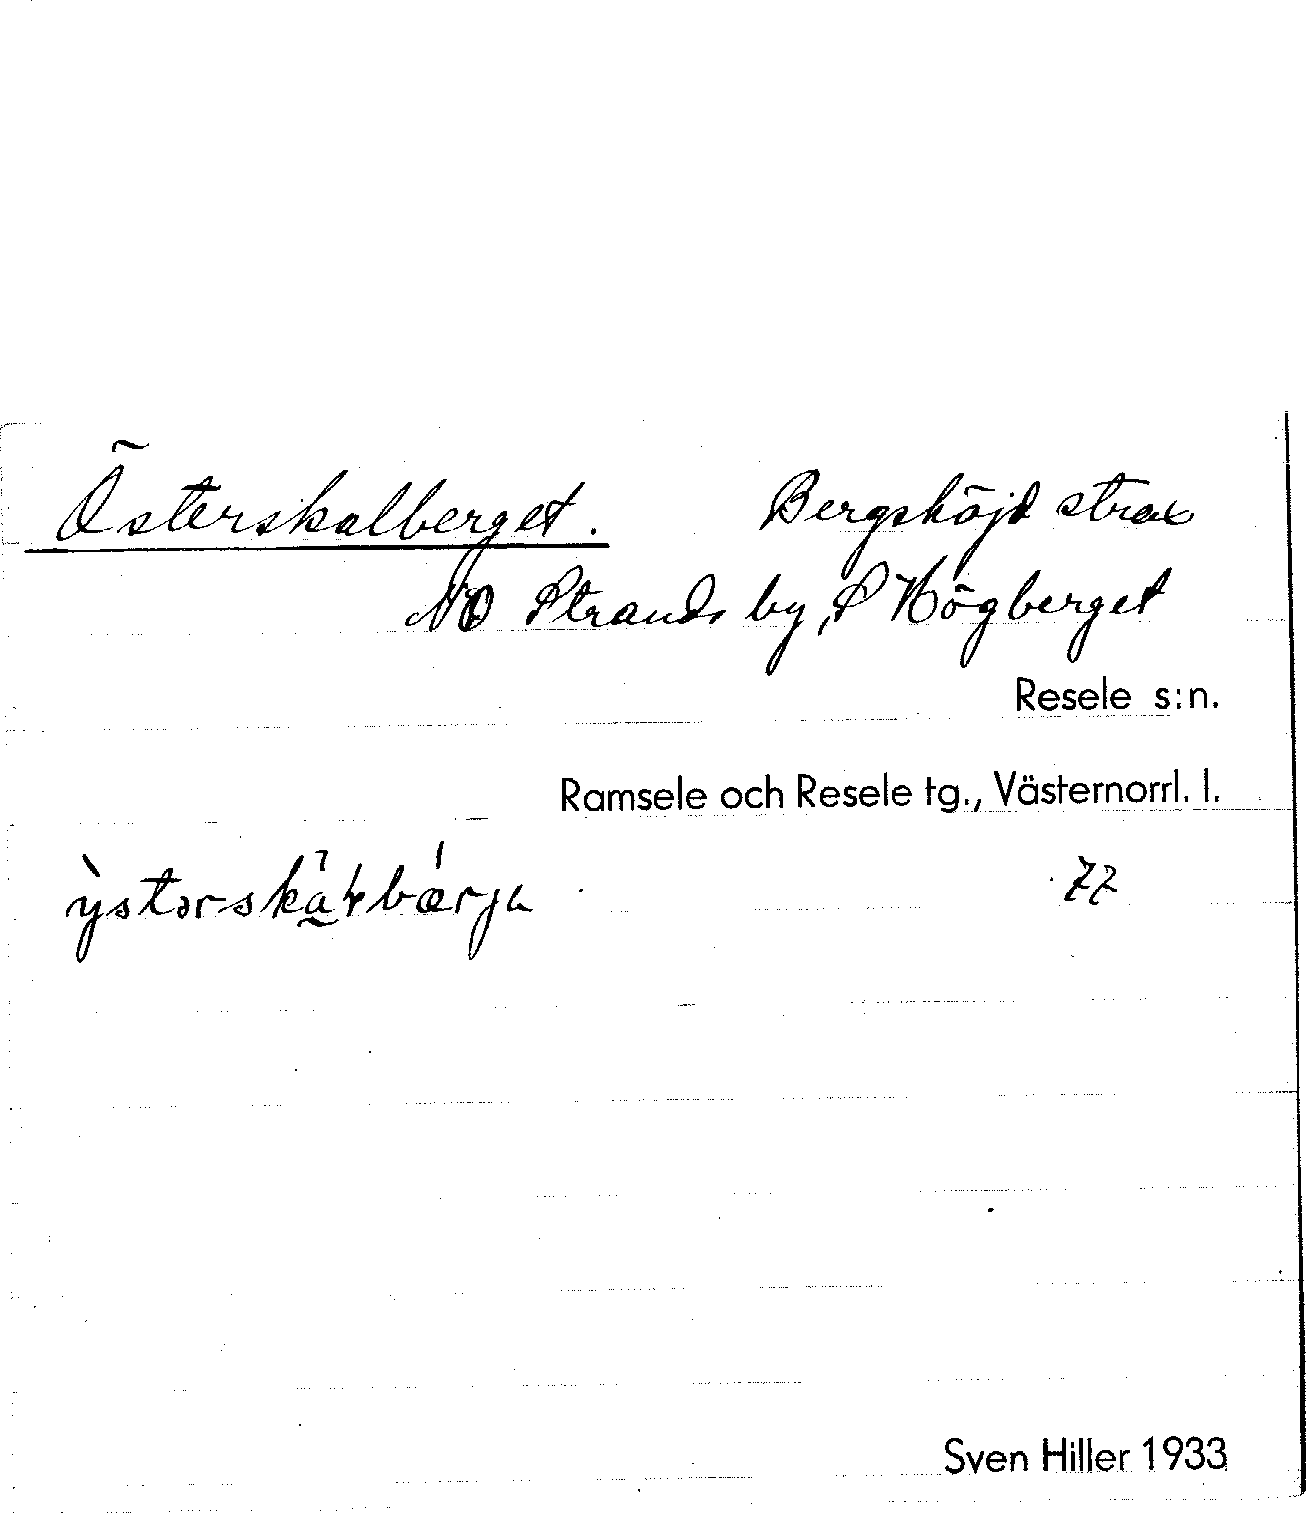 Österskalberget. Bergshöjd strax
NO Strands by, S Högberget
Resele s:n.
Ramsele och Resele tg., Västernorrl. l.
77
Sven Hiller 1933